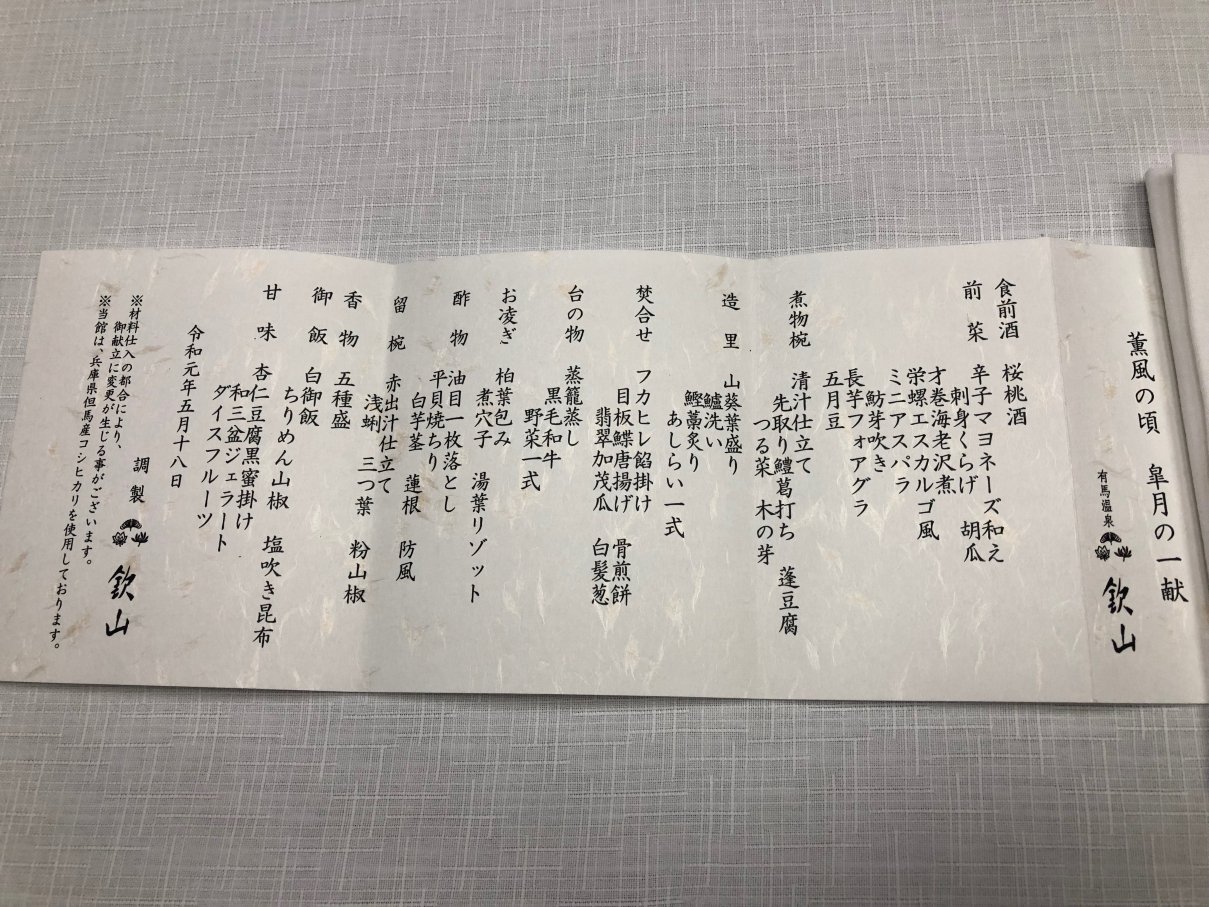 薫風の頃　皐月の一献
有馬温泉
欽山
食前酒　桜桃酒
前菜　辛子マヨネーズ和え
刺身くらげ　胡瓜
才巻海老沢煮
栄螺エスカルゴ風
ミニアスパラ
魴芽吹き
長芋フォアグラ
五月豆
煮物椀　清汁仕立て　蓬豆腐
先取り鱧葛打ち
つる菜　木の芽
造里　山葵葉盛り
鱸洗い
鰹藁炙り
あしらい一式
焚合せ　フカヒレ餡掛け
目板鰈唐揚げ　骨煎餅
翡翠加茂瓜　白髪葱
台の物　蒸籠蒸し
黒毛和牛
野菜一式
お凌ぎ　柏葉包み
煮穴子　湯葉リゾット
酢物　油目一枚落とし
平貝焼ちり
白芋茎　蓮根　防風
留椀　赤出汁仕立て
浅蜊　三つ葉　粉山椒
香物　五種盛
御飯　白御飯
ちりめん山椒　塩吹き昆布
甘味　杏仁豆腐黒蜜掛け
和三盆ジェラート
ダイスフルーツ
令和元年五月十八日
調製
欽山
※材料仕入の都合により、
御献立に変更が生じる事がございます。
※当館は、兵庫県但馬産コシヒカリを使用しております。